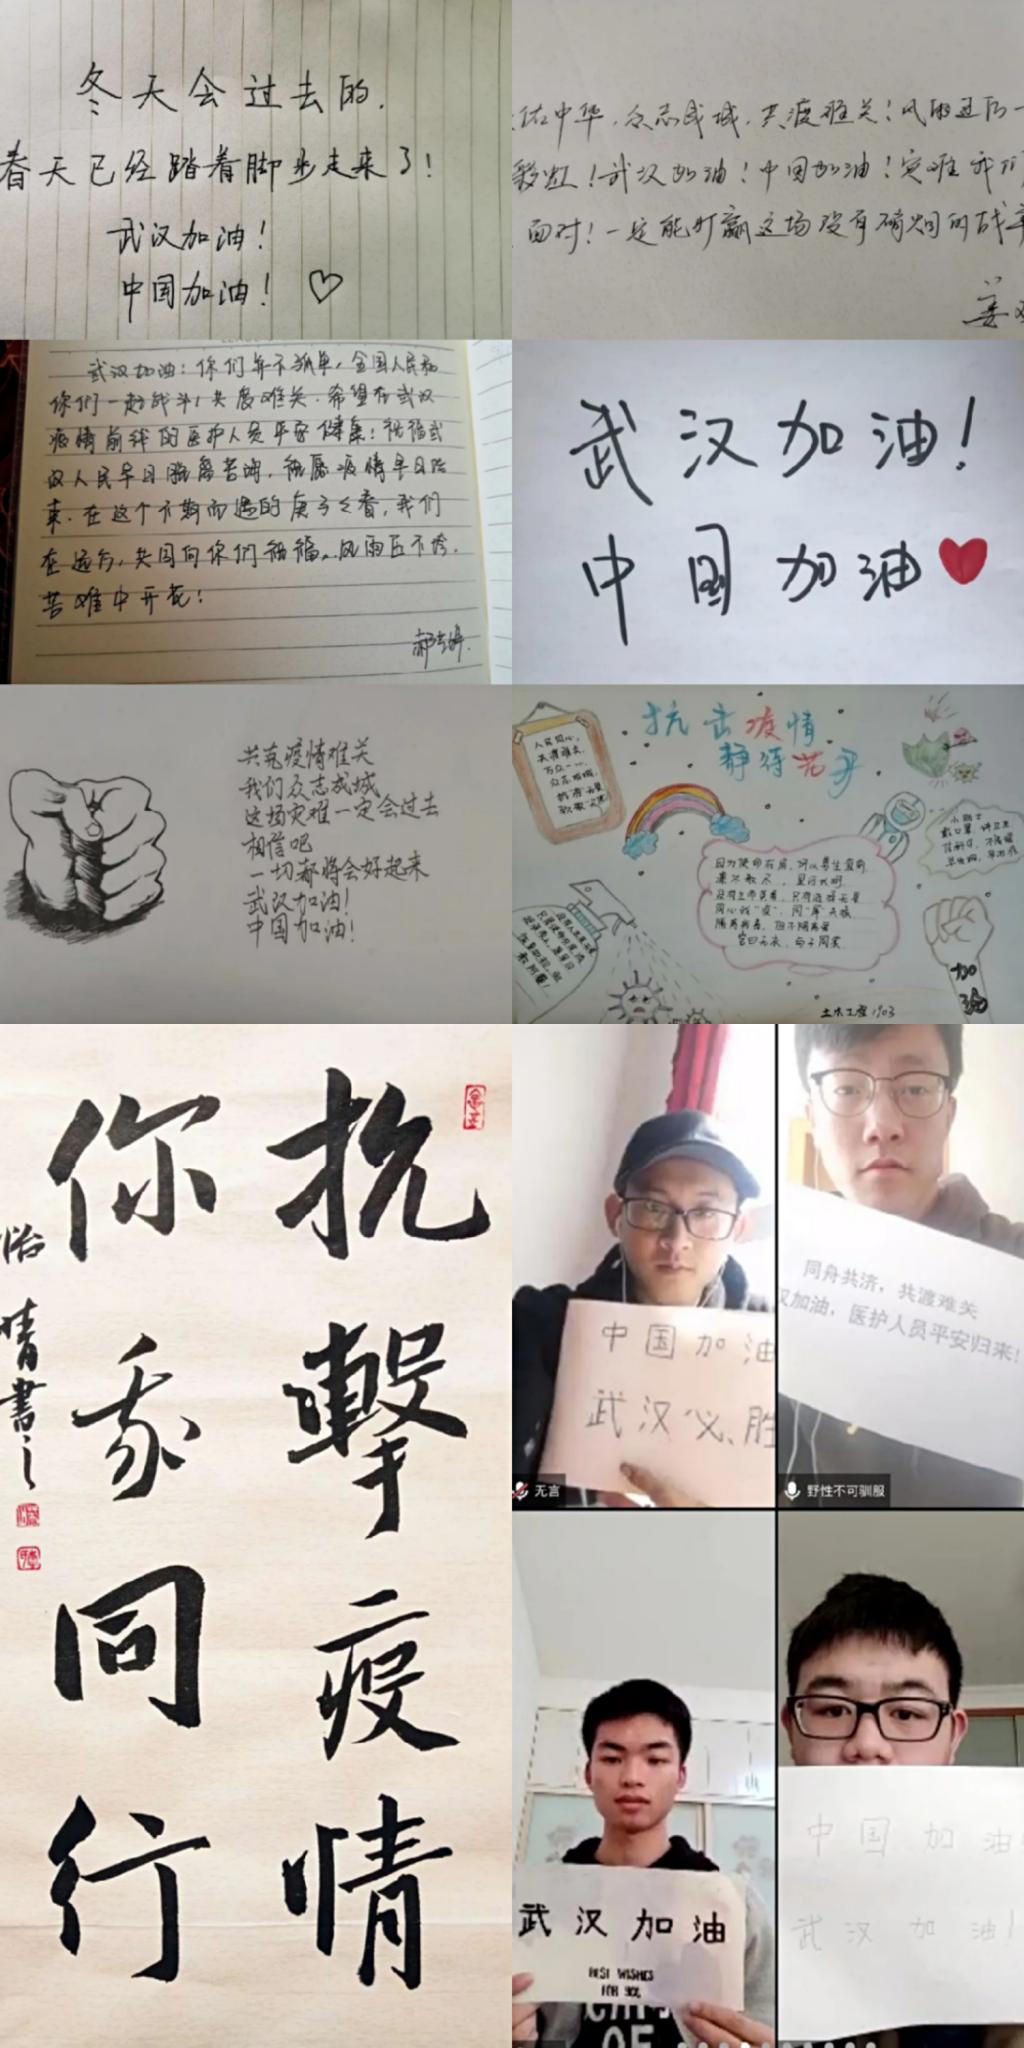 冬天会过去的.
春天已经踏着脚步走来了!
武汉加油!
中国加油! ♡
佑中华,众志成城,共渡难关!风雨过后一
彩虹!武汉加油!中国加油!灾难 我们
面对!一定能打赢这场没有硝烟的战争
姜
武汉加油:你们并不孤单,全国人民和
你们一起战斗,共度难关.希望在武汉
疫情前线的医护人员平安健康!祝福武
汉人民早日脱离苦海,祝愿疫情早日结
束.在这个不期而遇的庚子之春,我们
在远方,共同向你们祝福.风雨压不垮.
苦难中开花!
武汉加油!
中国加油
共克疫情难关
我们众志成城
这场灾难一定会过去
相信吧
一切都将会好起来
武汉加油!
中国加油!
抗击疫情
静待花开
人民同心,
共渡难关,
万众一心,
众志成城,
因为使命在肩,所以奋生忘死
同心战"疫",同"舟"共济
隔离病毒,但不隔离爱
岂曰无衣,与子同裳
加
油
土木工程1903
抗擊疫情
你我同行
怡晴書之
中国加油
武汉必胜
无言
同舟共济,共渡难关
汉加油,医护人员平安归来!
野性不可驯服
武汉加油
BEST WISHES
FOR YOU
中国加油
武汉加油!